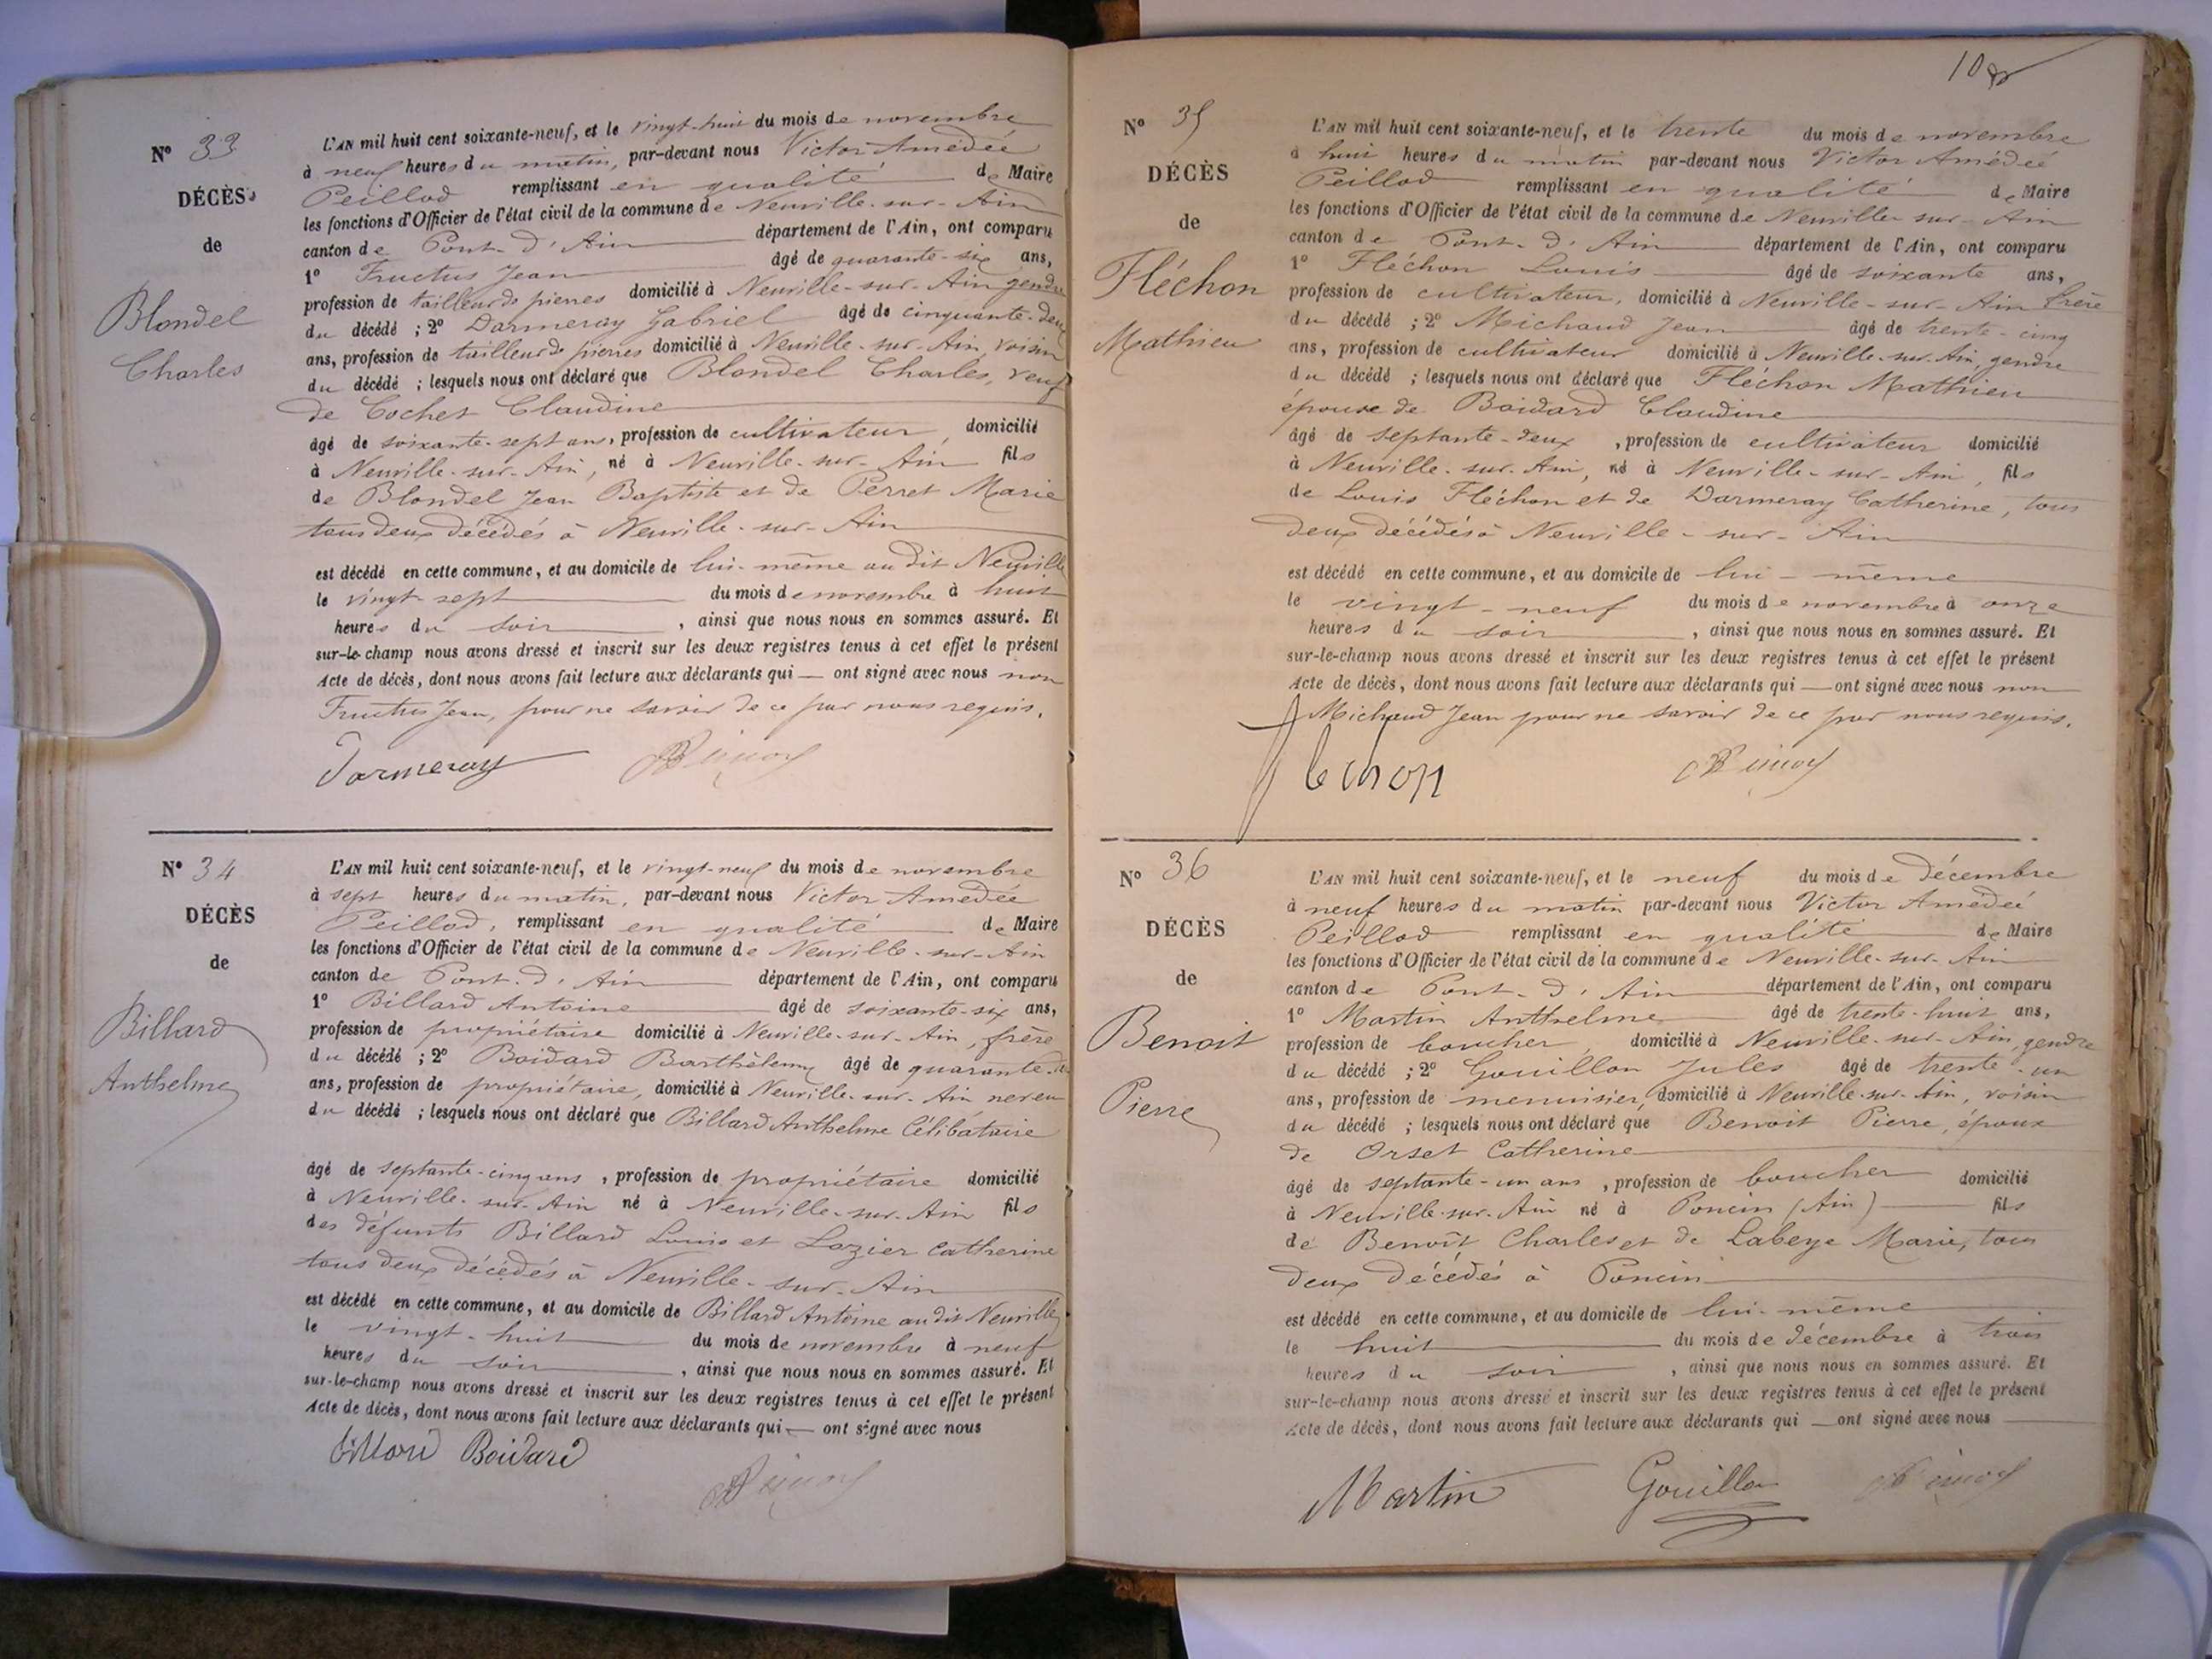 N° 33
DÉCÈS
de
Blondel
Charles
L'AN mil huit cent soixante-neuf, et le vingt-huit du mois de novembre
à neuf heures du matin, par-devant nous Victor Amédée
Peillod remplissant en qualité de Maire
les fonctions d'Officier de l'état civil de la commune de Neuville-sur-Ain
canton de Pont-d'Ain département de l'Ain, ont comparu
1° Fructus Jean âgé de quarante-six ans,
profession de tailleur de pierres domicilié à Neuville-sur-Ain gendre
du décédé ; 2° Darmeray Gabriel âgé de cinquante-deux
ans, profession de tailleur de pierres domicilié à Neuville-sur-Ain, voisin
du décédé ; lesquels nous ont déclaré que Blondel Charles, veuf
de Cochet Claudine
âgé de soixante-sept ans, profession de cultivateur, domicilié
à Neuville-sur-Ain, né à Neuville-sur-Ain fils
de Blondel Jean Baptiste et de Perret Marie
tous deux décédés à Neuville-sur-Ain
est décédé en cette commune, et au domicile de lui-même au dit Neuville
le vingt-sept du mois de novembre à huit
heures du soir, ainsi que nous nous en sommes assuré. Et
sur-le-champ nous avons dressé et inscrit sur les deux registres tenus à cet effet le présent
Acte de décès, dont nous avons fait lecture aux déclarants qui — ont signé avec nous non
Fructus Jean, pour ne savoir de ce par nous requis.
Darmeray
N° 34
DÉCÈS
de
Billard
Anthelme
L'AN mil huit cent soixante-neuf, et le vingt-neuf du mois de novembre
à sept heures du matin, par-devant nous Victor Amédée
Peillod, remplissant en qualité de Maire
les fonctions d'Officier de l'état civil de la commune de Neuville-sur-Ain
canton de Pont-d'Ain département de l'Ain, ont comparu
1° Billard Antoine âgé de soixante-six ans,
profession de propriétaire domicilié à Neuville-sur-Ain, frère
du décédé ; 2° Boidard Barthélemy âgé de quarante
ans, profession de propriétaire, domicilié à Neuville-sur-Ain neveu
du décédé ; lesquels nous ont déclaré que Billard Anthelme Célibataire
âgé de septante-cinq ans, profession de propriétaire domicilié
à Neuville-sur-Ain né à Neuville-sur-Ain fils
des défunts Billard Louis et Lozier Catherine
tous deux décédés à Neuville-sur-Ain
est décédé en cette commune, et au domicile de Billard Antoine au dit Neuville
le vingt-huit du mois de novembre à neuf
heures du soir, ainsi que nous nous en sommes assuré. Et
sur-le-champ nous avons dressé et inscrit sur les deux registres tenus à cet effet le présent
Acte de décès, dont nous avons fait lecture aux déclarants qui — ont signé avec nous
Billard Boidard
10
N° 35
DÉCÈS
de
Fléchon
Mathieu
L'AN mil huit cent soixante-neuf, et le trente du mois de novembre
à huit heures du matin par-devant nous Victor Amédée
Peillod remplissant en qualité de Maire
les fonctions d'Officier de l'état civil de la commune de Neuville-sur-Ain
canton de Pont-d'Ain département de l'Ain, ont comparu
1° Fléchon Louis âgé de soixante ans,
profession de cultivateur, domicilié à Neuville-sur-Ain frère
du décédé ; 2° Michaud Jean âgé de trente-cinq
ans, profession de cultivateur domicilié à Neuville-sur-Ain, gendre
du décédé ; lesquels nous ont déclaré que Fléchon Mathieu
épouse de Boidard Claudine
âgé de septante-deux, profession de cultivateur domicilié
à Neuville-sur-Ain, né à Neuville-sur-Ain, fils
de Louis Fléchon et de Darmeray Catherine, tous
deux décédés à Neuville-sur-Ain
est décédé en cette commune, et au domicile de lui-même
le vingt-neuf du mois de novembre à onze
heures du soir, ainsi que nous nous en sommes assuré. Et
sur-le-champ nous avons dressé et inscrit sur les deux registres tenus à cet effet le présent
Acte de décès, dont nous avons fait lecture aux déclarants qui — ont signé avec nous non
Michaud Jean pour ne savoir de ce par nous requis.
flechon
N° 36
DÉCÈS
de
Benoit
Pierre
L'AN mil huit cent soixante-neuf, et le neuf du mois de décembre
à neuf heures du matin par-devant nous Victor Amédée
Peillod remplissant en qualité de Maire
les fonctions d'Officier de l'état civil de la commune de Neuville-sur-Ain
canton de Pont-d'Ain département de l'Ain, ont comparu
1° Martin Anthelme âgé de trente-huit ans,
profession de boucher, domicilié à Neuville-sur-Ain, gendre
du décédé ; 2° Gouillon Jules âgé de trente-un
ans, profession de menuisier, domicilié à Neuville-sur-Ain, voisin
du décédé ; lesquels nous ont déclaré que Benoit Pierre, époux
de Orset Catherine
âgé de septante-un ans, profession de boucher domicilié
à Neuville-sur-Ain né à Poncin (Ain) fils
de Benoît Charles et de Labeye Marie, tous
deux décédés à Poncin
est décédé en cette commune, et au domicile de lui-même
le huit du mois de décembre à trois
heures du soir, ainsi que nous nous en sommes assuré. Et
sur-le-champ nous avons dressé et inscrit sur les deux registres tenus à cet effet le présent
Acte de décès, dont nous avons fait lecture aux déclarants qui — ont signé avec nous
Martin Gouillon